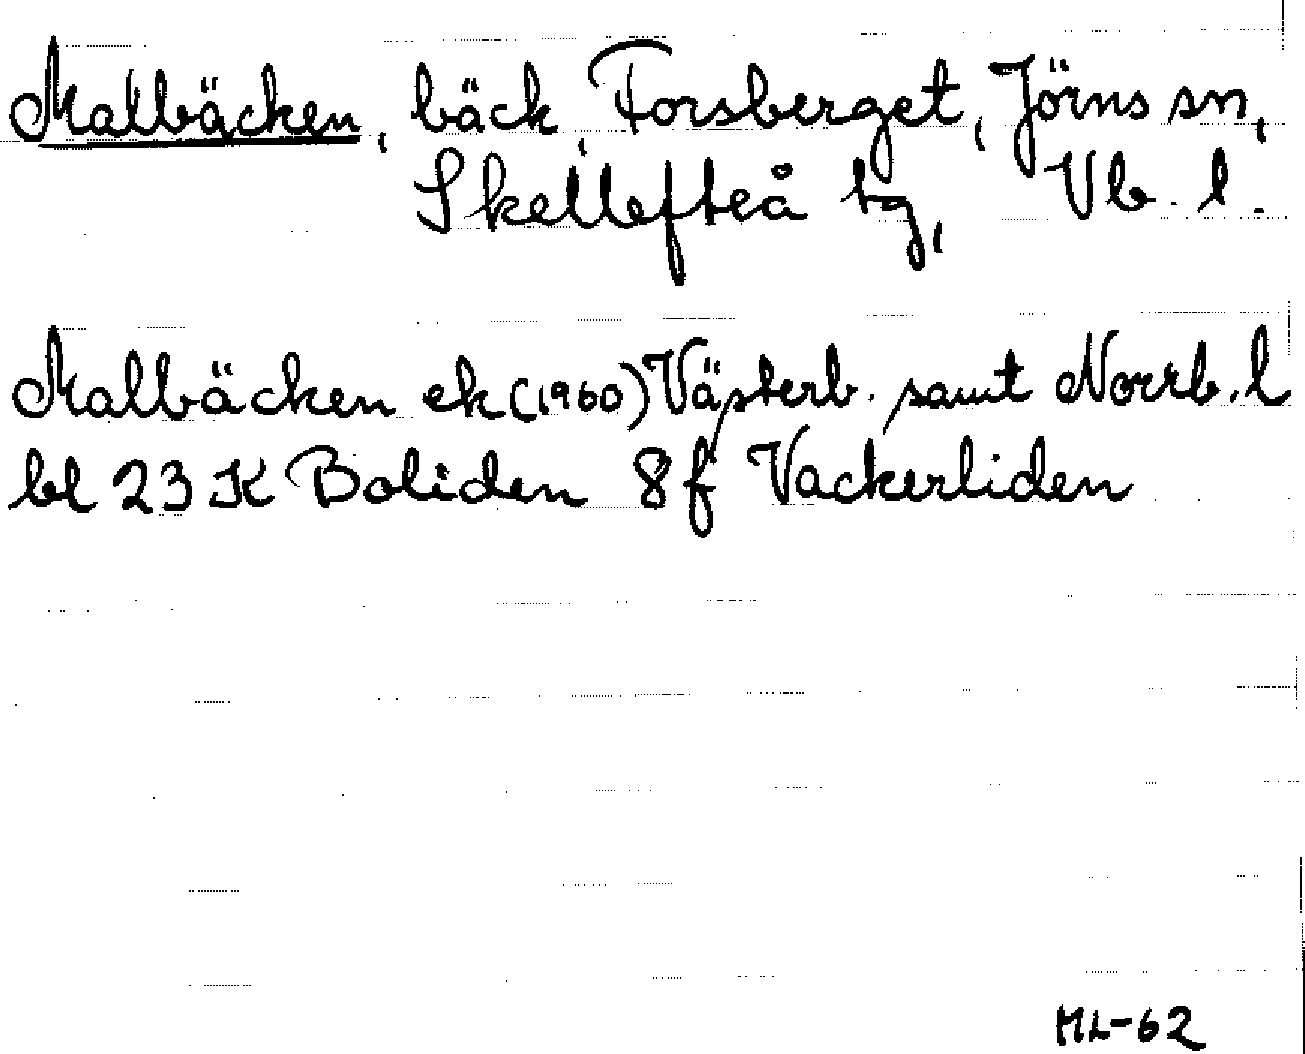 Malbäcken, bäck, Forsberget, Jörns sn,
Skellefteå tg, Vb. l.
Malbäcken ek (1960) Västerb. samt Norrb. l
bl 23 K Boliden 8 f Vackerliden
ML-62